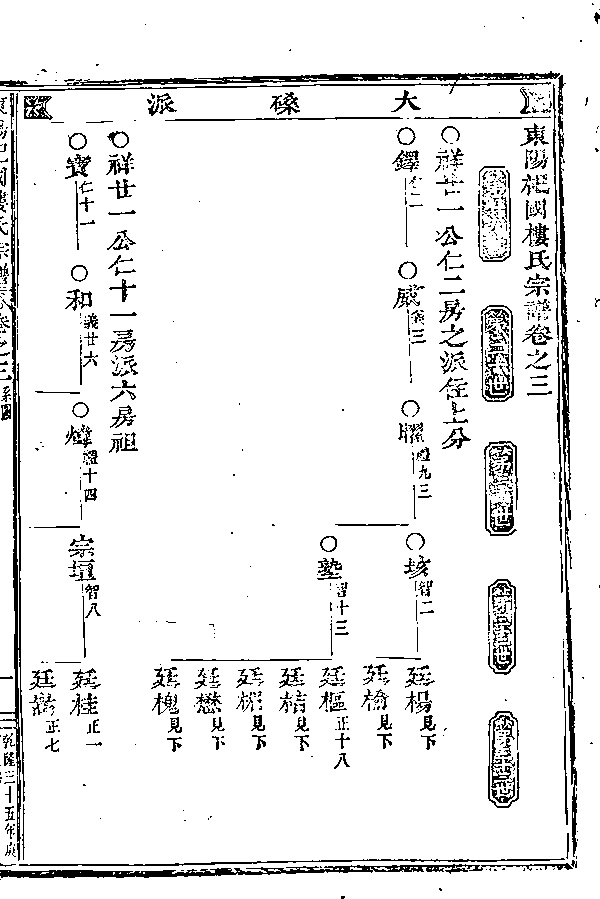 大磉派
東陽杞國樓氏宗譜卷之三
祥廿一公仁二房之派住上分
鐸仁二
威義三
曜禮九三
垓智二
廷楊見下
廷檜見下
塾智十三
廷樞正十八
廷桔見下
見下
廷懋見下
廷槐見下
祥廿一公仁十一房派六房祖
寶仁十一
和義廿六
煒禮十四
宗垣智八
廷桂正一
正七
東陽杞國樓氏宗譜卷之三系圖
乾隆三十五年庚